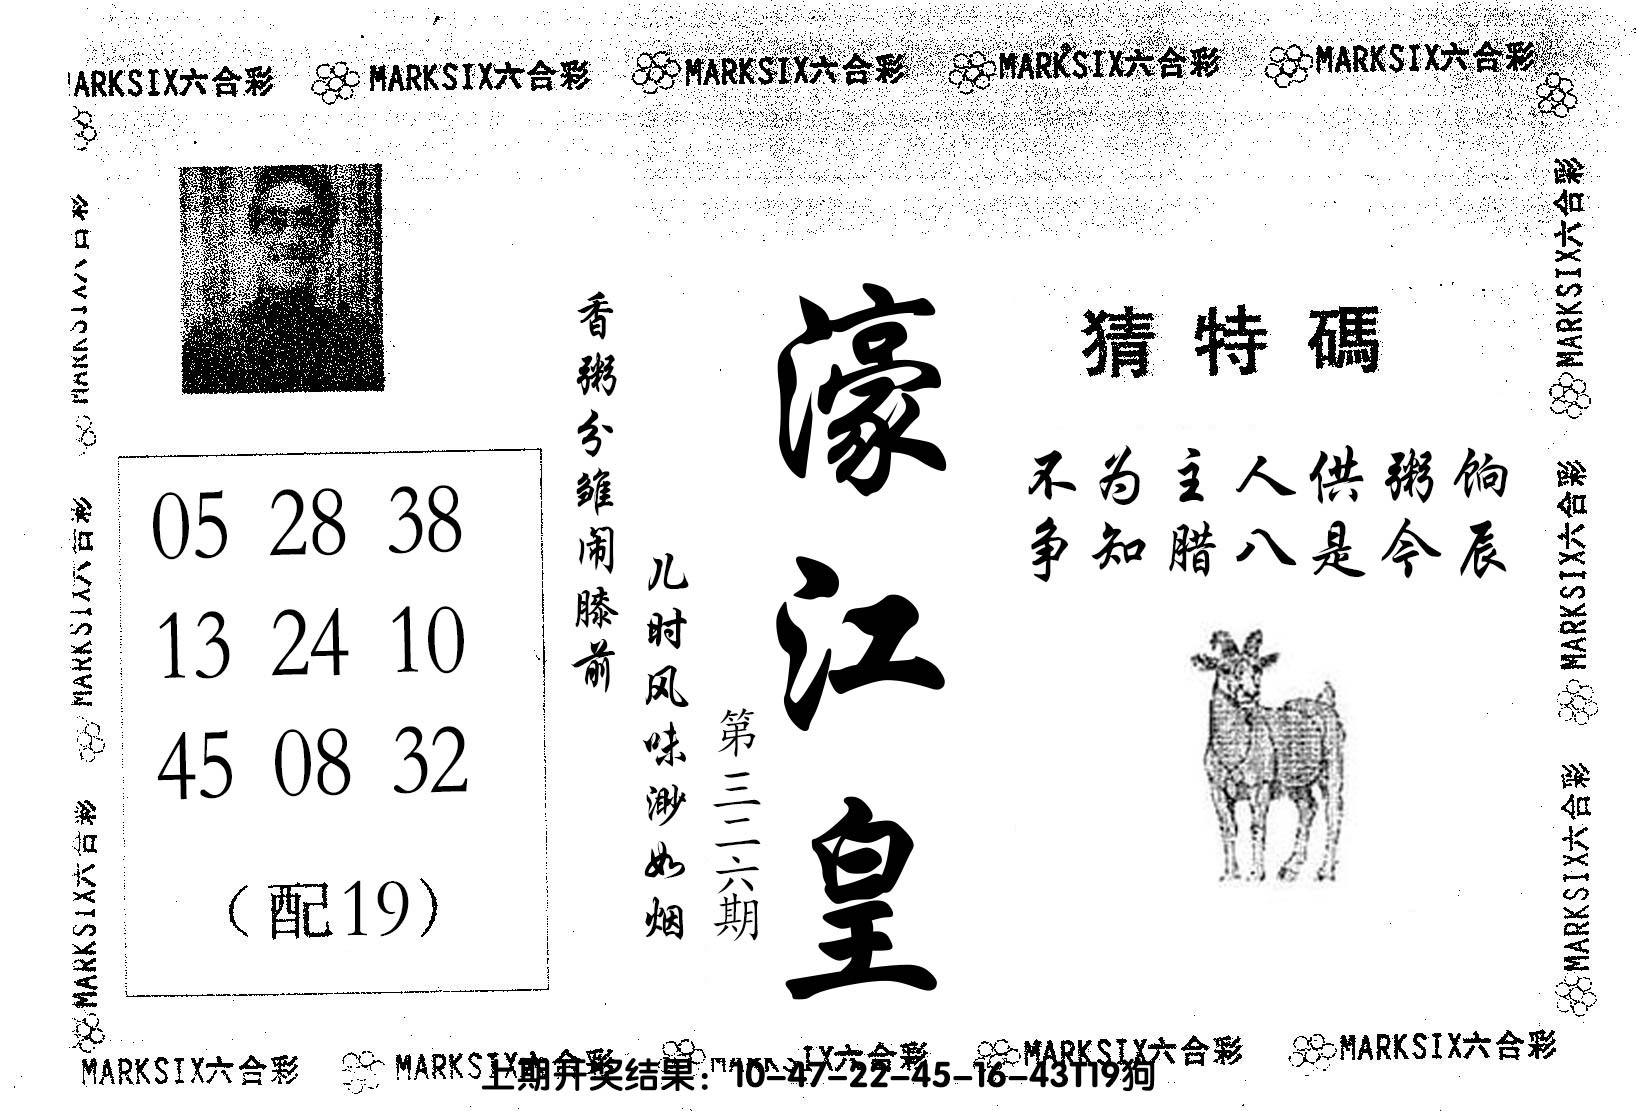 MARKSIX六合彩 MARKSIX六合彩 MARKSIX六合彩 MARKSIX六合彩 MARKSIX六合彩
猜特碼
不为主人供粥饷
争知腊八是今辰
濠江皇
第三二六期
儿时风味渺如烟
香粥分雏闹膝前
05 28 38
13 24 10
45 08 32
（配19）
MARKSIX六合彩
MARKSIX六合彩
MARKSIX六合彩
MARKSIX六合彩
MARKSIX六合彩
MARKSIX六合彩
MARKSIX六合彩 MARKSIX六合彩 MARKSIX六合彩 MARKSIX六合彩 MARKSIX六合彩
上期开奖结果：10-47-22-45-16-43T19狗